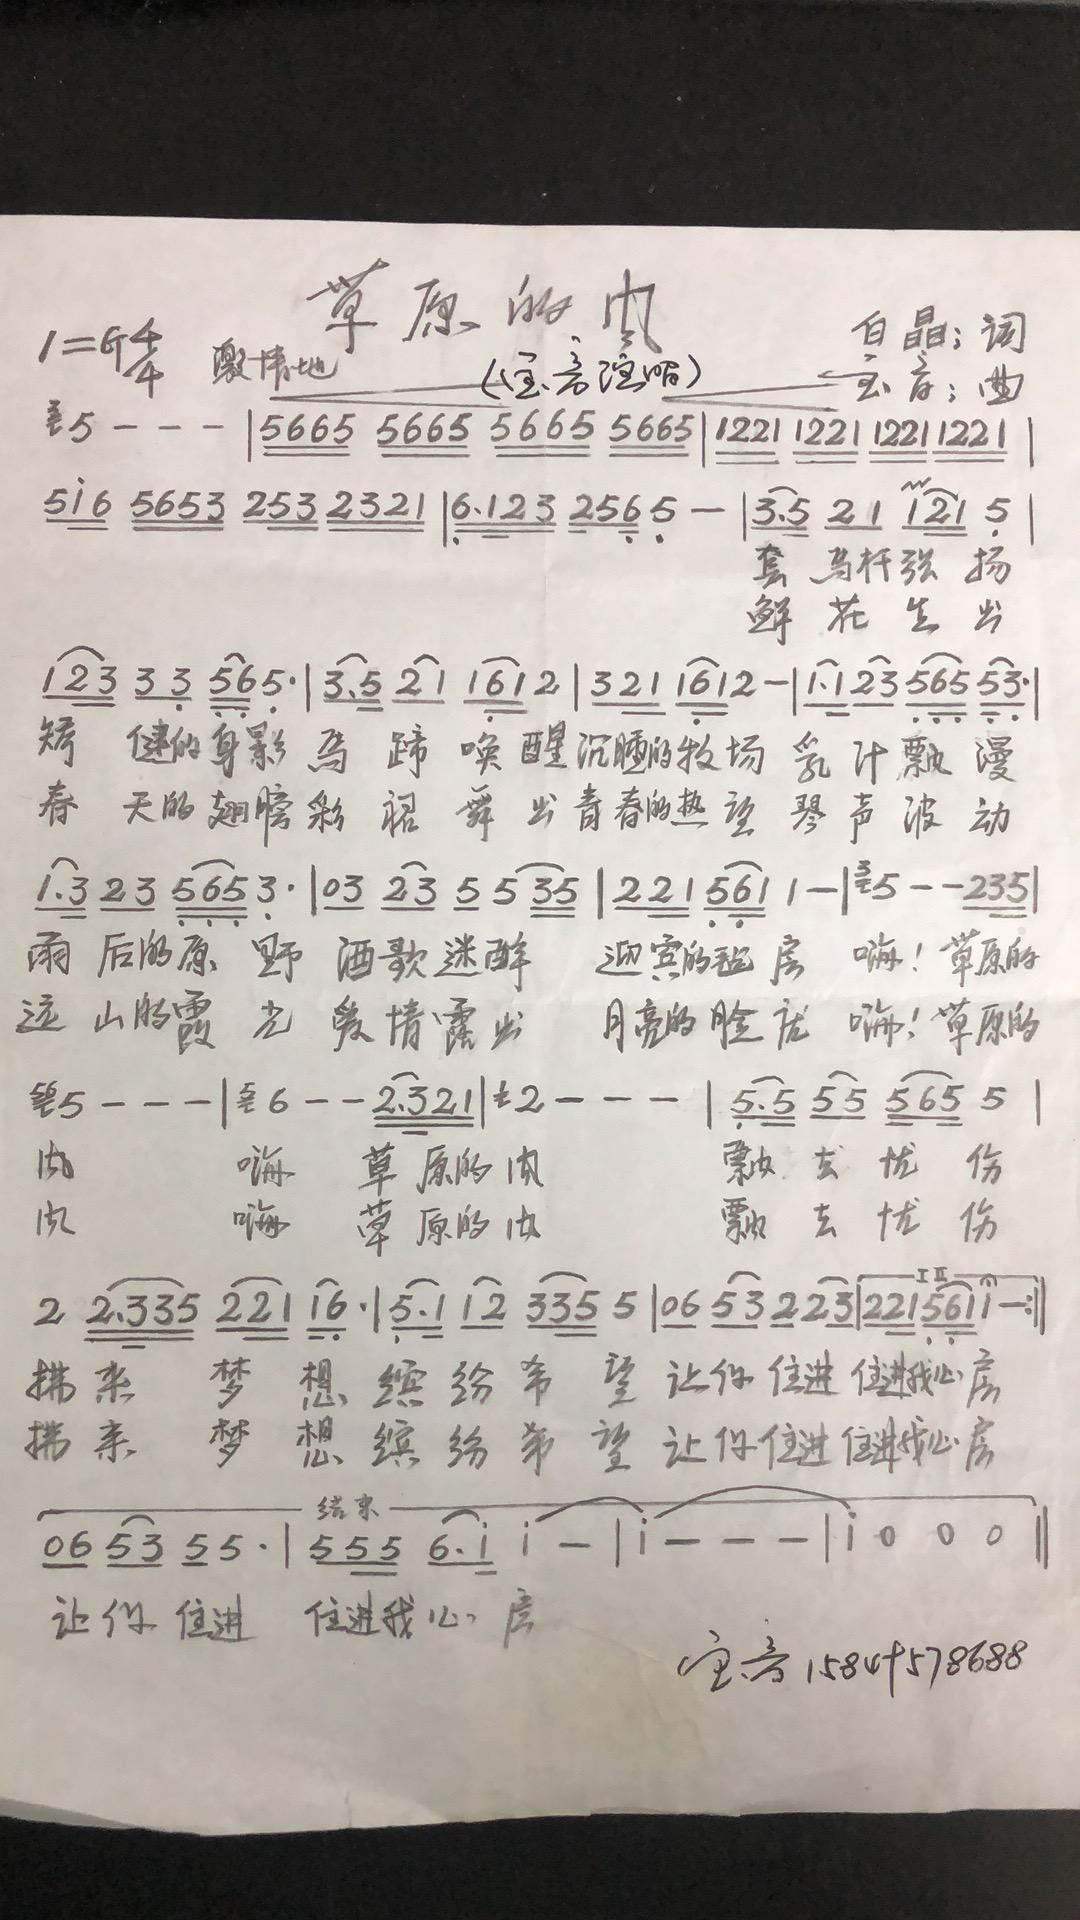 草原的风
1=G 4/4 激情地
(宝音演唱)
白晶:词
宝音:曲
5 - - - | 5665 5665 5665 5665 | 1221 1221 1221 1221 |
5i6 5653 253 2321 | 6.123 256 5 - | 3.5 21 121 5 |
套马杆张扬
鲜花生出
123 33 56 5. | 3.5 21 161 2 | 321 161 2 - | 1.1 23 565 53. |
矫健的身影马蹄唤醒沉睡的牧场乳汁飘漫
春天的翅膀彩裙舞出青春的热望琴声波动
1.3 23 565 3. | 03 23 5 5 35 | 221 561 1 - | 5 - - 235 |
雨后的原野酒歌迷醉迎宾的毡房嗨!草原的
远山的霞光爱情露出月亮的脸庞嗨!草原的
5 - - - | 6 - - 2.321 | 2 - - - | 5.5 55 565 5 |
风嗨草原的风飘去忧伤
风嗨草原的风飘去忧伤
I II
2 2.335 221 16. | 5.1 12 335 5 | 06 53 2 23 | 221 561 i - :||
拂来梦想缤纷希望让你住进住进我心房
拂来梦想缤纷希望让你住进住进我心房
结束
06 53 55. | 555 6.i i - | i - - - | i 0 0 0 ||
让你住进住进我心房
宝音 15847578688